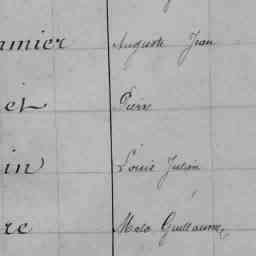 amier Auguste Jean
et Pierre
in Louis Julien
re Guillaume